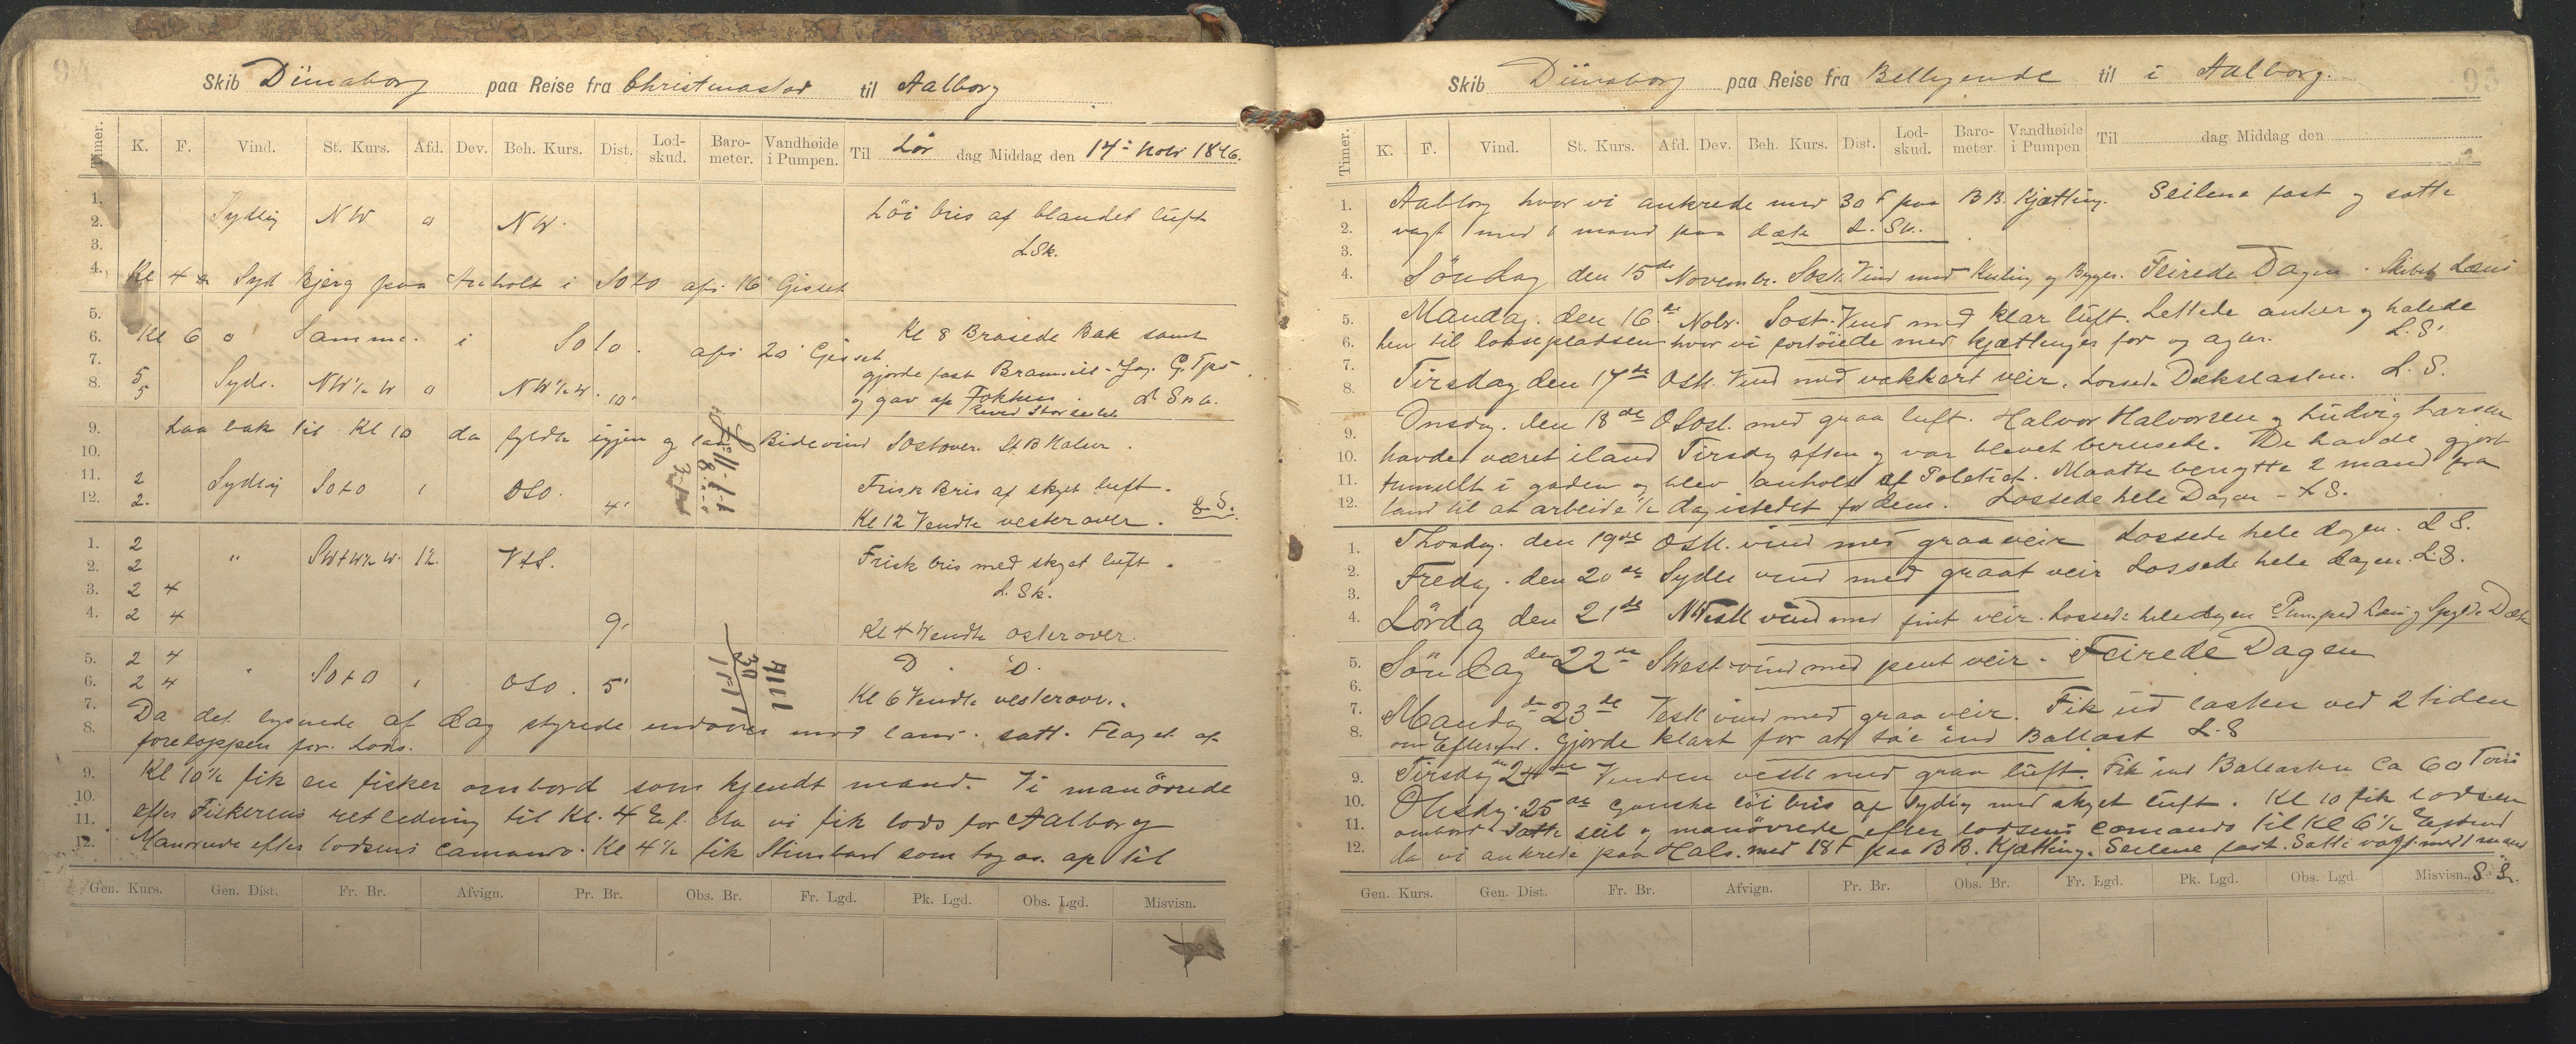 94
Skib Dünaborg paa Reise fra Christinastad til Aalborg
Timer. K. F. Vind. St. Kurs. Afd. Dev. Beh. Kurs. Dist. Lod-skud. Baro-meter. Vandhøide i Pumpen. Til Lør dag Middag den 14de Nobr 1896.
1.
2. Sydlig NW 0 NW. Löi bris af blandet luft
3. L.Sk.
4. Kl 4 Syd Bjerg paa Anholt i SOtO afs. 16' Gisset
5.
6. Kl 6 Samme i SOtO. afs. 20' Gisset Kl 8 Brasede Bak samt
7. gjorde fast Bramseil - Jag. G. Tps.
8. 5 5 Syds. NW½W 0 NW½W. 10' og gav op Fokken.
Reved Storseilet
9. Laa bak til Kl 10 da fyldte igjen og laa Bidevind Sostover. St.B Halser.
10.
11. 2 Sydlig SOtO 1 OSO. Frisk Bris af skyet luft.
12. 2. 4' Kl 12 Vendte vesterover. L.S.
1. 2 " SWtW½W. 1½. VtS. Frisk bris med skyet luft.
2. 2
3. 2 4 L.Sk.
4. 2 4 9' Kl 4 Vendte østerover.
5. 2 4 " SOtO 1 OSO. 5' D. D.
6. 2 4 Kl 6 Vendte vesterovr.
7. Da det lysnede af dag styrede indover mod land. satt. Flaget af
8. foretoppen for. Lods.
9. Kl 10½ fik en fisker ombord som kjendt mand. Vi manövrede
10.
11. efter Fiskerens retledning til Kl. 4 Ef. da vi fik lods for Aalborg
12. Manvrede efter lodsens Camando. Kl 4½ fik Stimbaad som tog os. op til
Gen. Kurs. Gen. Dist. Fr. Br. Afvign. Pr. Br. Obs. Br. Fr. Lgd. Pk. Lgd. Obs. Lgd. Misvisn.
95
Skib Dünaborg paa Reise fra Beliggende til i Aalborg.
Timer. K. F. Vind. St. Kurs. Afd. Dev. Beh. Kurs. Dist. Lod-skud. Baro-meter. Vandhøide i Pumpen Til dag Middag den
1. Aalborg hvor vi ankrede med 30 F paa BB. Kjætting. Seilene fast og satte
2. vagt med 1 mand paa dæk L. Sk.
3.
4. Söndag den 15de Novembr. Sostl. Vind med Kuling og Byger. Feirede Dagen. Skibet Læns
5. Mandag. den 16de Nobr. Sost. Vind med klar luft. Lettede anker og halede
6. hen til losepladsen hvor vi fortöiede med kjættinger for og agter. L.S.
7.
8. Tirsdag den 17de Ostl. Vind med vakkert veir. Lossede Dækslasten. L.S.
9. Onsdag. den 18de OSost. med graa luft. Halvor Halvorsen og Ludvig Larsen
10. havde været iland Tirsdag aften og var blevet berusede. De havde gjort
11. tumullt i gaden og blev anholt af Politiet. Maatte benytte 2 mand fra
12. land til at arbeide ½ dag istedet for dem. Lossede hele Dagen - L.S.
1. Thorsdag. den 19de Ostl. vind med graa veir Lossede hele dagen. L.S.
2. Fredag. den 20de Sydle vind med graat veir Lossede hele dagen. L.S.
3.
4. Lördag den 21de NVestl vind med fint veir. Lossede heledagen Pumped Læns og Spylde Dæk
5. Söndag den 22de SVest-vind med pent veir. Feirede Dagen
6.
7. Mandag den 23de Vestl vind med graa veir. Fik ud lasten ved 2 tiden
8. om Efterm. Gjorde klart for at ta'e ind Ballast L.S
9. Tirsdag den 24de Vinden vestl med graa luft. Fik ind Ballasten Ca 60 Tons
10. Onsdag. 25de Ganske löi bris af Sydig med skyet luft. Kl 10 fik lodsen
11. ombord Satte seil og manövrede efter lodsens Comando til Kl 6½
12. da vi ankrede paa Hals. med 18 F paa BB. Kjætting. Seilene fast. Satte vagt med 1 mand
Gen. Kurs. Gen. Dist. Fr. Br. Afvign. Pr. Br. Obs. Br. Fr. Lgd. Pk. Lgd. Obs. Lgd Misvisn.